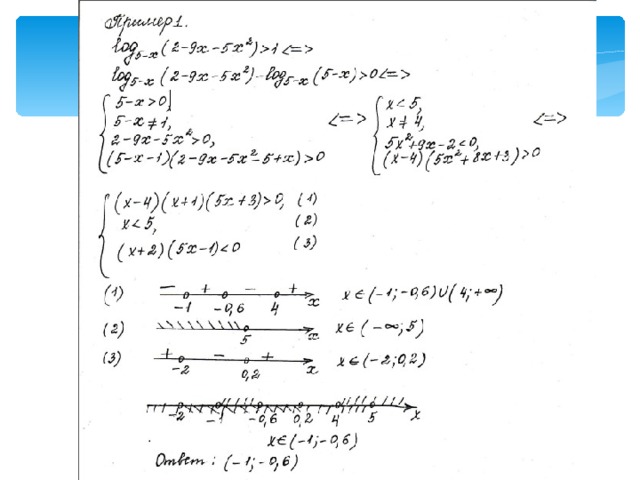 Пример 1.
log₅₋ₓ(2-9x-5x²)>1<=>
log₅₋ₓ(2-9x-5x²)-log₅₋ₓ(5-x)>0<=>
5-x>0,
5-x≠1,
2-9x-5x²>0,
(5-x-1)(2-9x-5x²-5+x)>0
<=>
x<5,
x≠4,
5x²+9x-2<0,
(x-4)(5x²+8x+3)>0
<=>
(x-4)(x+1)(5x+3)>0, (1)
x<5, (2)
(x+2)(5x-1)<0 (3)
(1) − + − + -1 -0,6 4 x x∈(-1;-0,6)∪(4;+∞)
(2) 5 x x∈(-∞;5)
(3) + − + -2 0,2 x x∈(-2;0,2)
-2 -1 -0,6 0,2 4 5 x
x∈(-1;-0,6)
Ответ: (-1;-0,6)